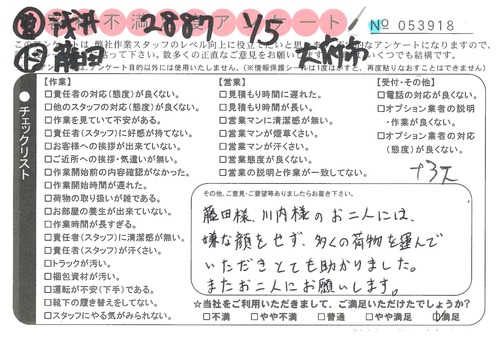 営 浅井 2887 4/5 № 053918
不満 アンケート
このアンケートは、弊社作業スタッフのレベル向上に役立てたいと思います。
大府市
作 藤田
チェックリスト
【作業】
□責任者の対応(態度)が良くない。
□他のスタッフの対応(態度)が良くない。
□作業を見ていて不安がある。
□責任者(スタッフ)に好感が持てない。
□お客様への挨拶が出来ていない。
□ご近所への挨拶・気遣いが無い。
□作業開始前の内容確認がなかった。
□作業開始時間が遅れた。
□荷物の取り扱いが雑である。
□お部屋の養生が出来ていない。
□作業時間が長すぎる。
□責任者(スタッフ)に清潔感が無い。
□責任者(スタッフ)が汗くさい。
□トラックが汚い。
□梱包資材が汚い。
□運転が不安(下手)である。
□靴下の履き替えをしてない。
□スタッフにやる気がみられない。
【営業】
□見積もり時間に遅れた。
□見積もり時間が長い。
□営業マンに清潔感が無い。
□営業マンが煙草くさい。
□営業マンが汗くさい。
□営業態度が良くない。
□営業の説明と作業が一致してない。
【受付・その他】
□電話の対応が良くない。
□オプション業者の説明
・作業が良くない。
□オプション業者の対応
(態度)が良くない。
その他、ご意見・ご要望等ありましたらお書き下さい。
藤田様、川内様のお二人には、
嫌な顔をせず、多くの荷物を運んで
いただきとても助かりました。
またお二人にお願いします。
☆当社をご利用いただきまして、ご満足いただけたでしょうか?
□不満 □やや不満 □普通 □やや満足 ☑満足